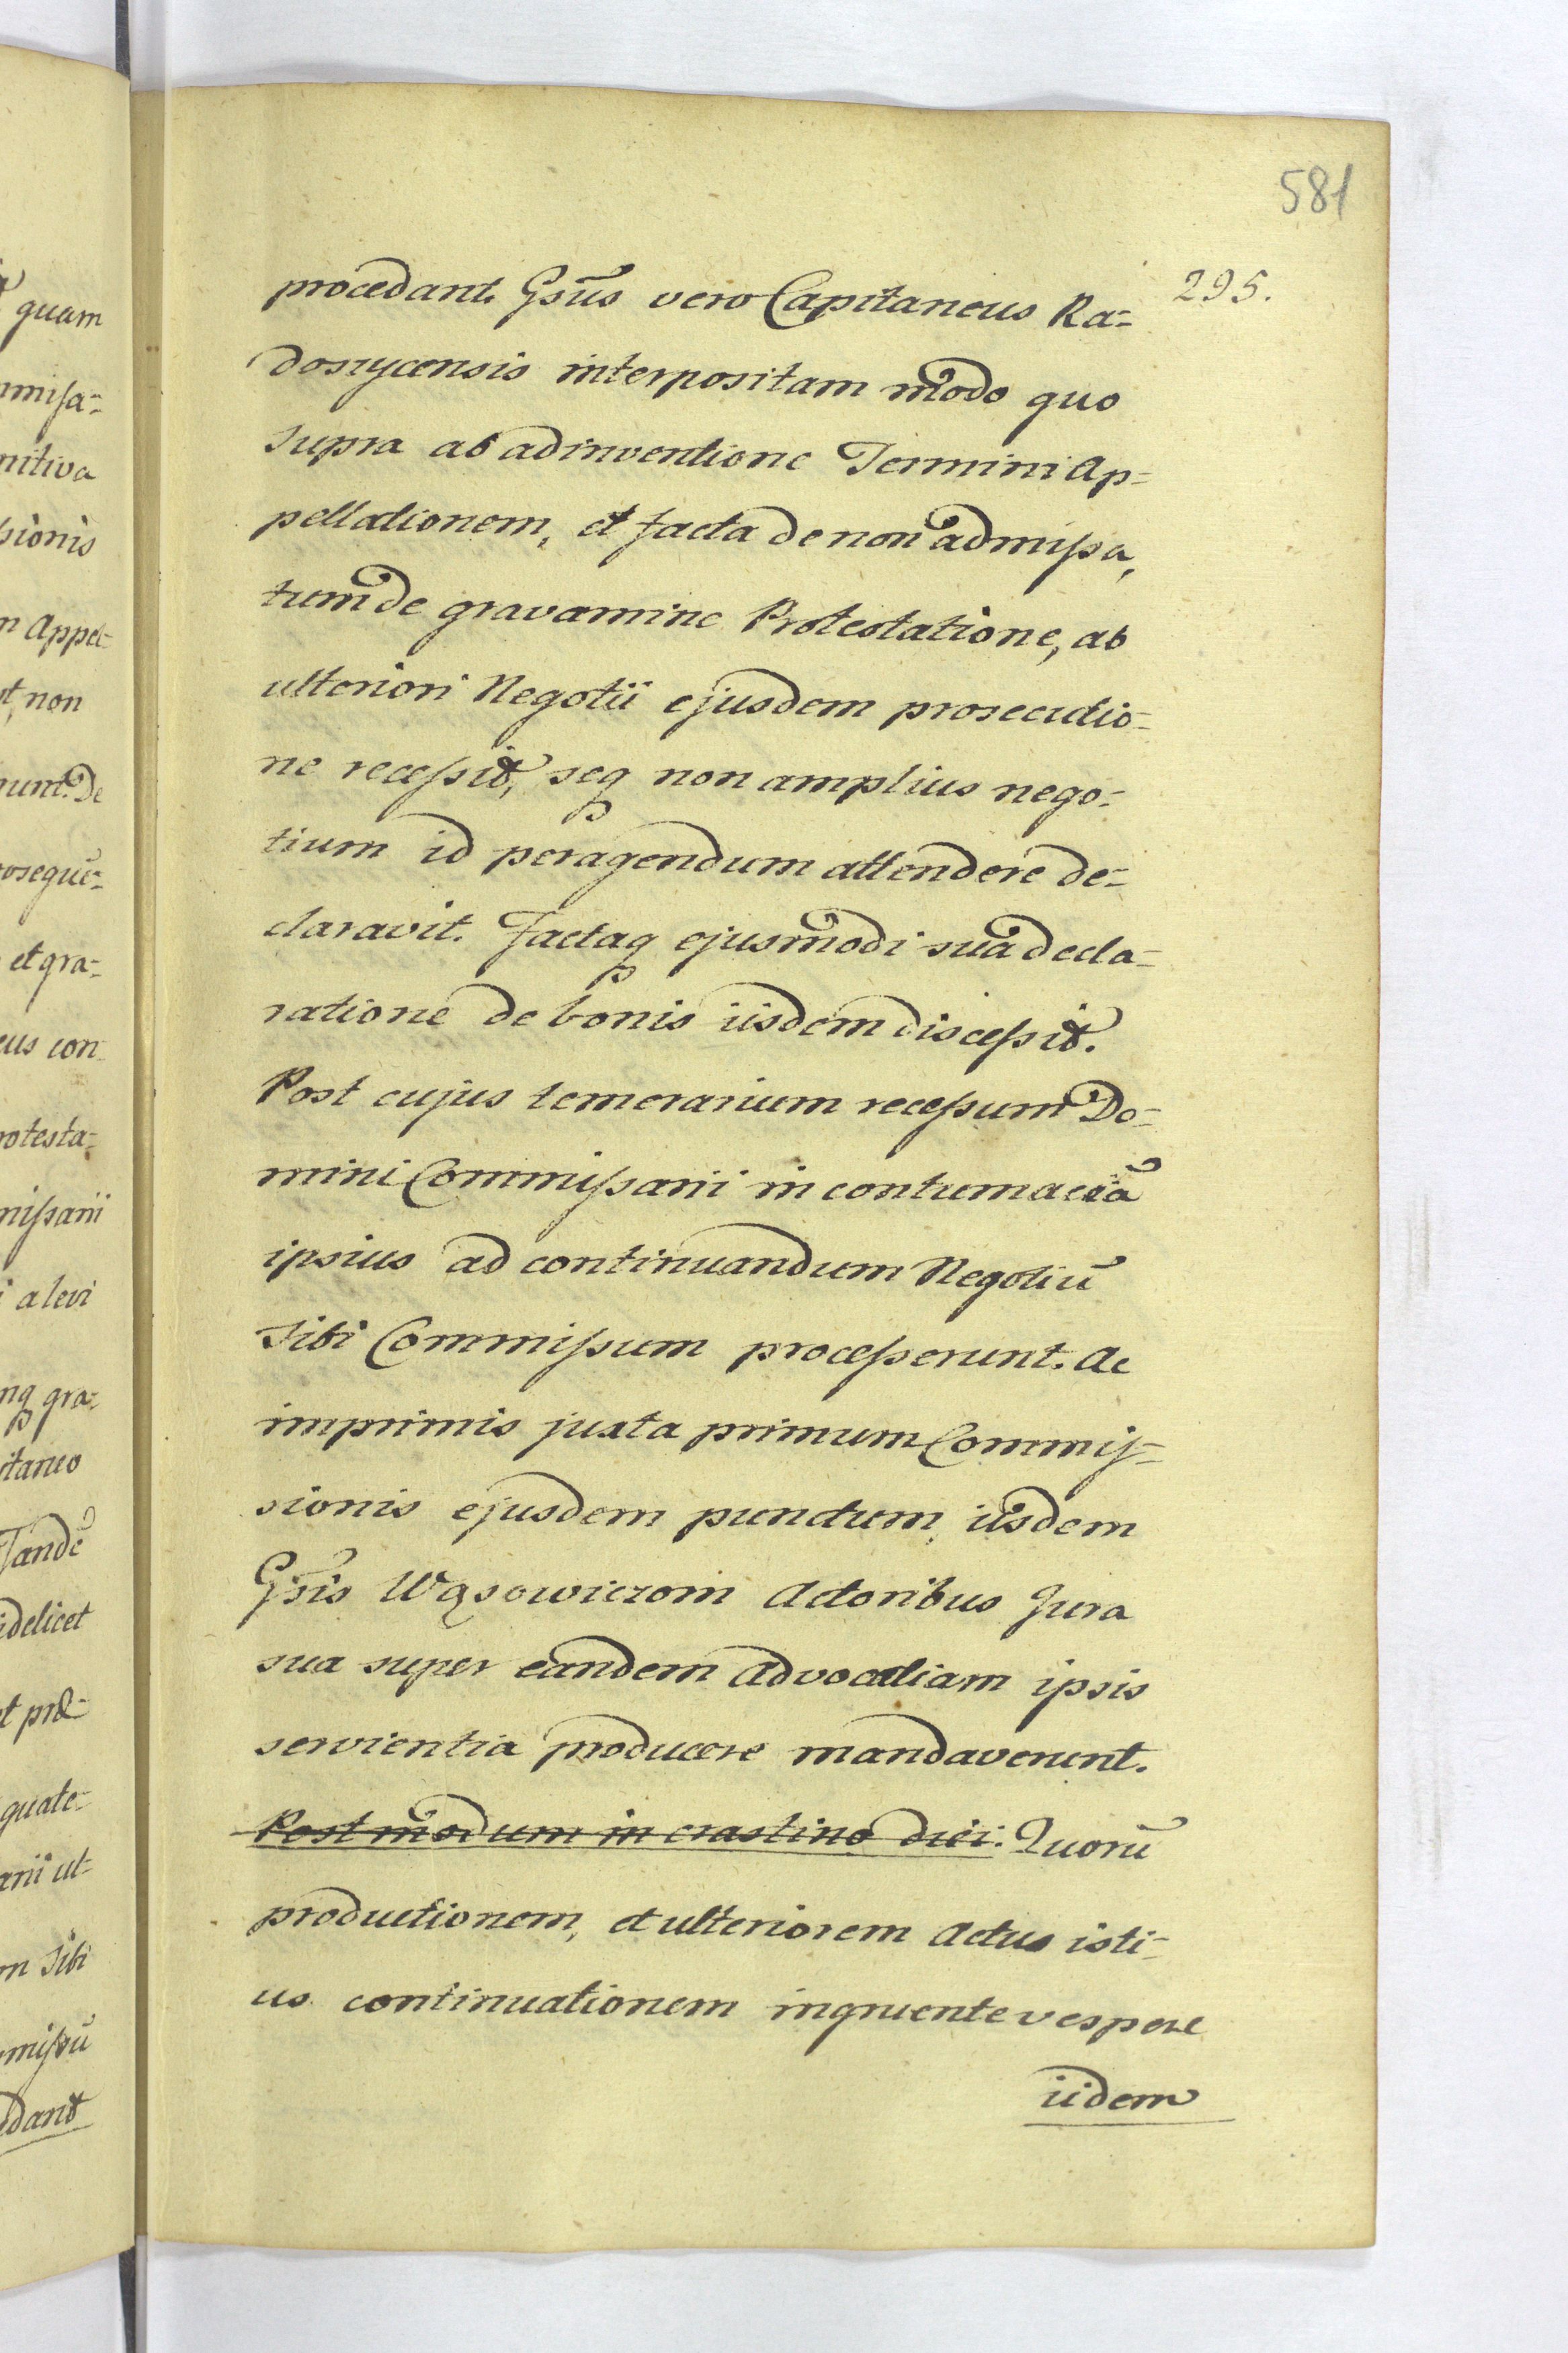 581
295.
procedant. Gsũs vero Capitaneus Ra=
doszycensis interpositam modo quo
supra ab adinventione Termini Ap=
pellationem, et facta de non admissa,
tum de gravamine Protestatione, ab
ulteriori Negotii ejusdem prosecutio=
ne recessit, seq non amplius nego=
tium id peragendum attendere de=
claravit. Factaq ejusmodi sua decla=
ratione de bonis iisdem discessit.
Post cujus temerarium recessum Do=
mini Commissarii in contumaciã
ipsius ad continuandum Negotiũ
Sibi Commissum processerunt. Ac
imprimis juxta primum Commis=
sionis ejusdem punctum, iisdem
Gsis Wąsowiczom Actoribus Jura
sua super eandem Advocatiam ipsis
servientia producere mandaverunt.
Post modum in crastino diei. Quorũ
productionem, et ulteriorem Actus isti=
us continuationem ingruente vespere
iidem
quam
missa=
nitiva
sionis
m Appel=
t, non
num. De
osequẽ=
et gra=
eus con
rotesta=
missarii
i a levi
nq gra=
itaneo
Tandẽ
idelicet
et præ=
quate=
arii ut=
m Sibi
missũ
edant